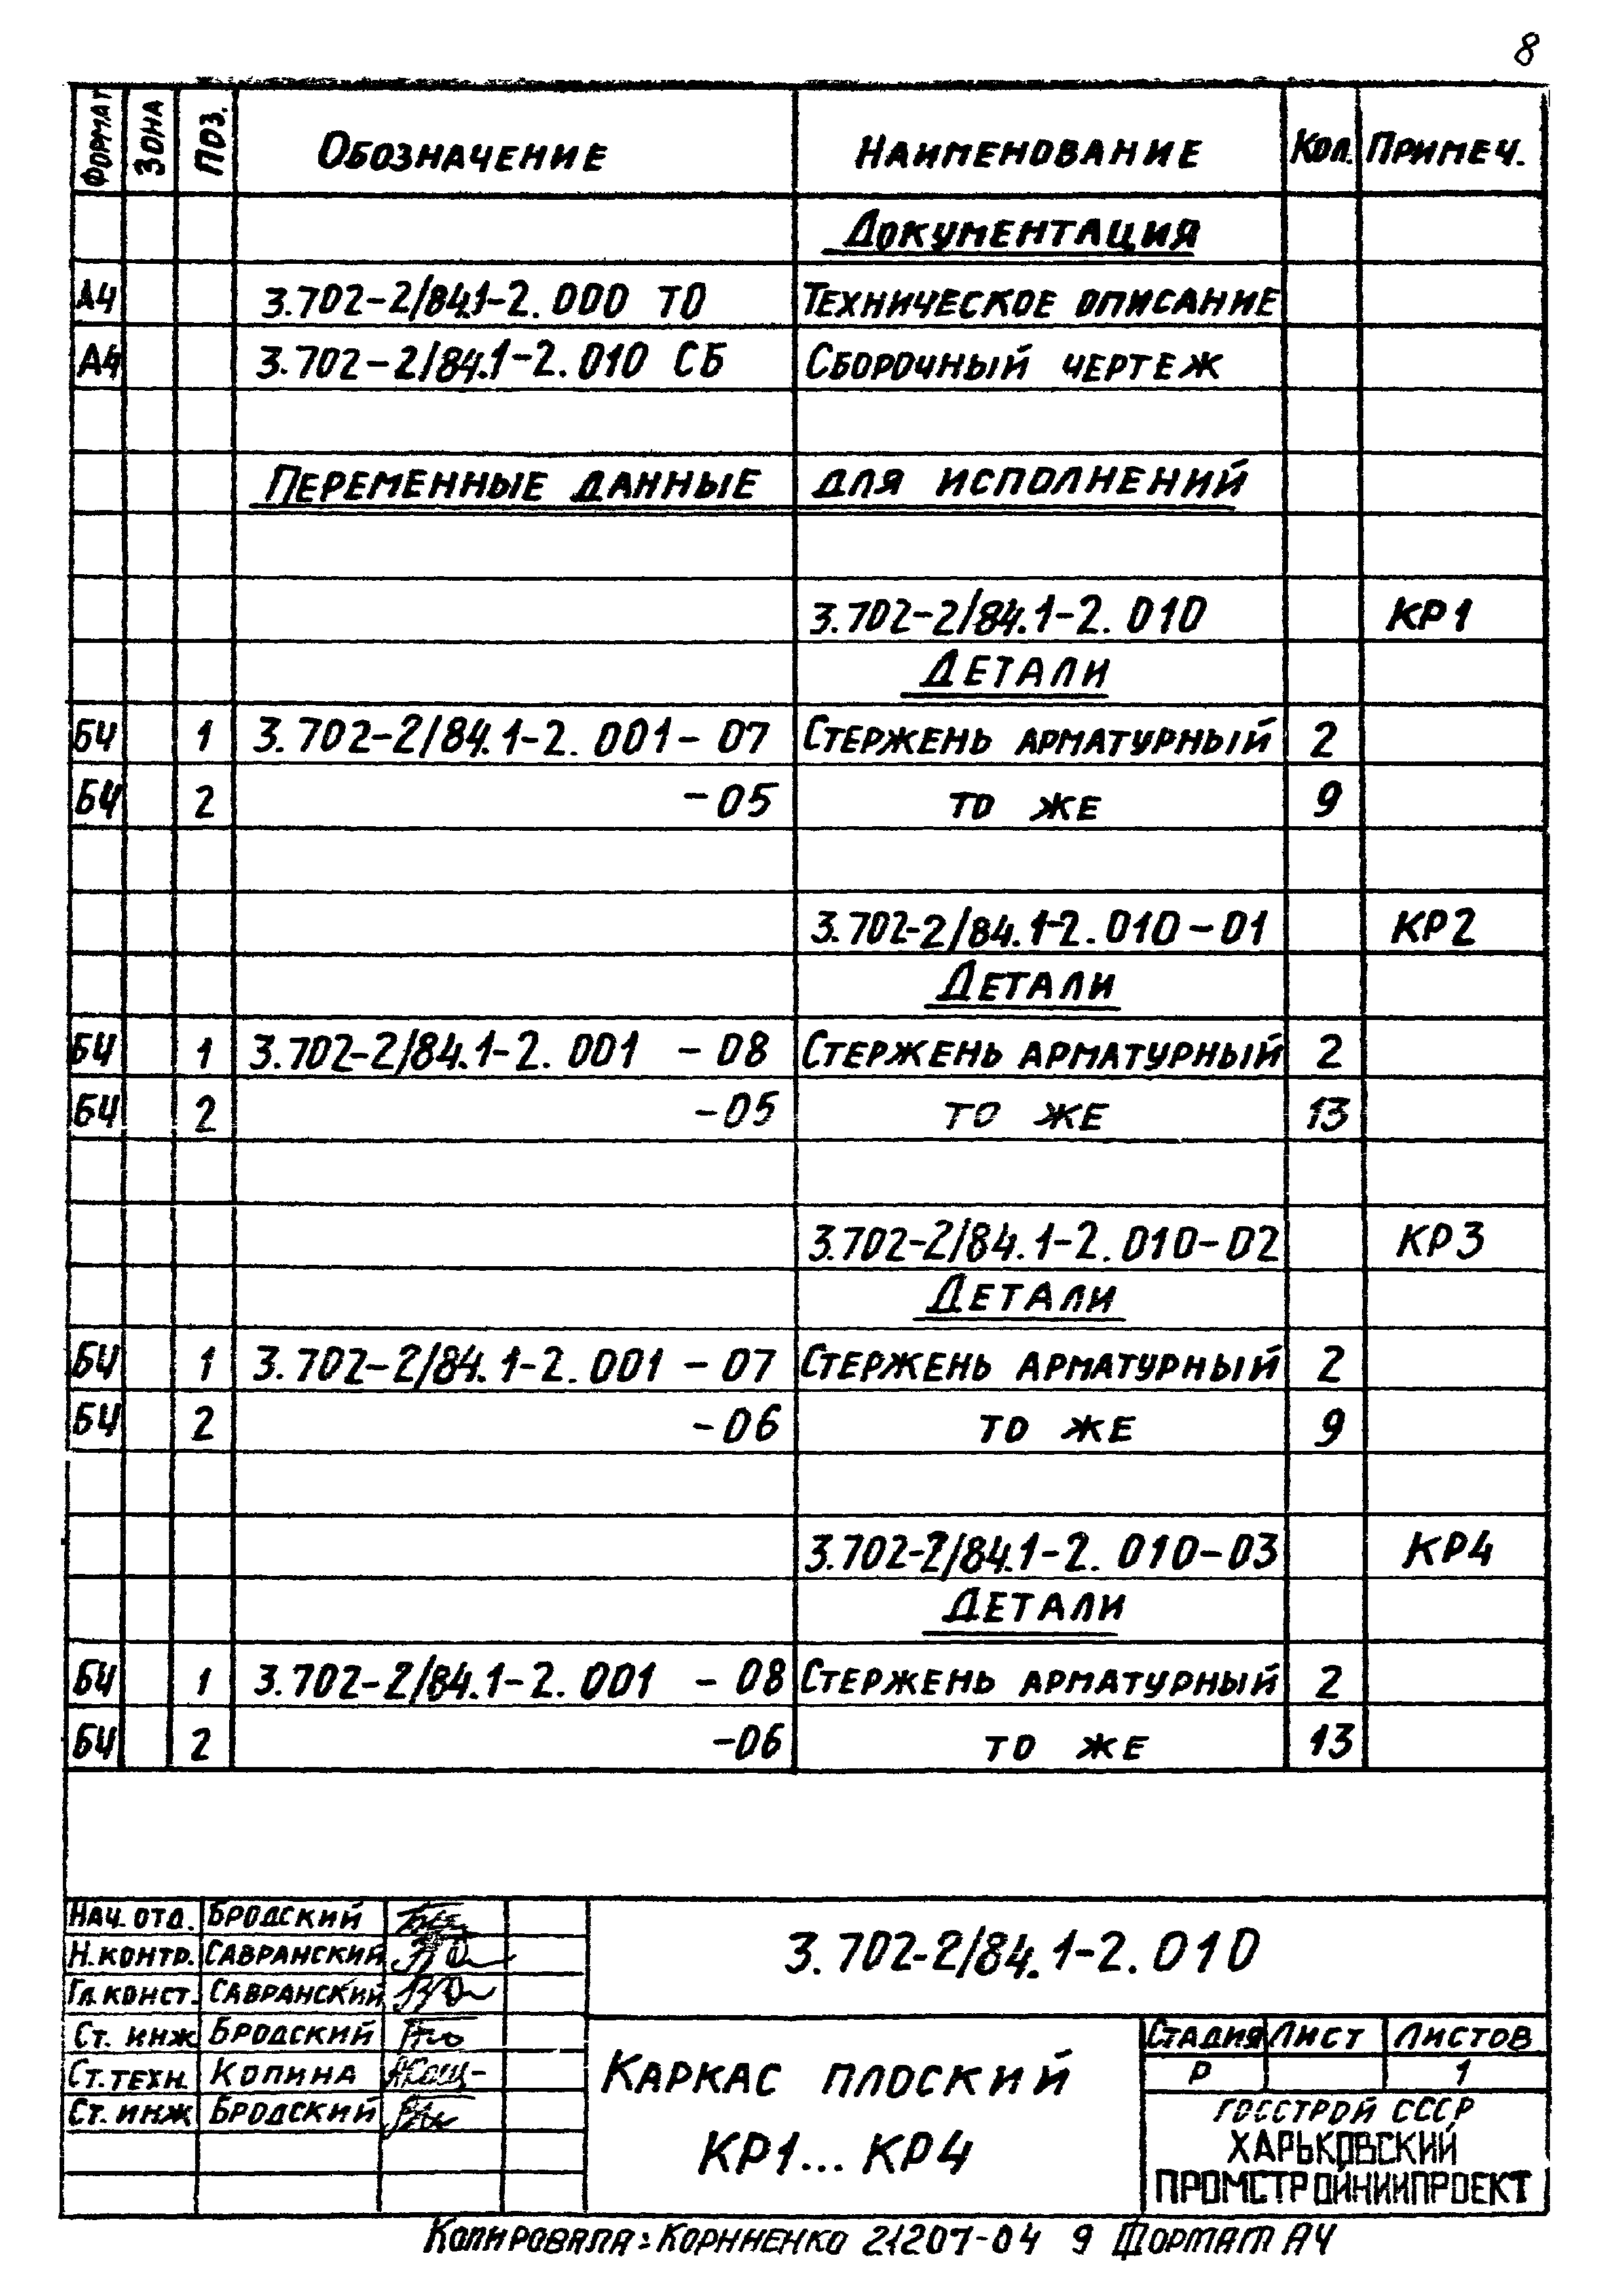 8
Формат Зона Поз. Обозначение Наименование Кол. Примеч.
Документация
А4 3.702-2/84.1-2.000 ТО Техническое описание
А4 3.702-2/84.1-2.010 СБ Сборочный чертеж
Переменные данные для исполнений
3.702-2/84.1-2.010 КР1
Детали
БЧ 1 3.702-2/84.1-2.001-07 Стержень арматурный 2
БЧ 2 -05 то же 9
3.702-2/84.1-2.010-01 КР2
Детали
БЧ 1 3.702-2/84.1-2.001 -08 Стержень арматурный 2
БЧ 2 -05 то же 13
3.702-2/84.1-2.010-02 КР3
Детали
БЧ 1 3.702-2/84.1-2.001 -07 Стержень арматурный 2
БЧ 2 -06 то же 9
3.702-2/84.1-2.010-03 КР4
Детали
БЧ 1 3.702-2/84.1-2.001 -08 Стержень арматурный 2
БЧ 2 -06 то же 13
Нач. отд. Бродский
Н.контр. Савранский
Гл.конст. Савранский
Ст. инж Бродский
Ст.техн. Копина
Ст. инж Бродский
3.702-2/84.1-2.010
Каркас плоский
КР1...КР4
Стадия Лист Листов
Р 1
Госстрой СССР
ХАРЬКОВСКИЙ
ПРОМСТРОЙНИИПРОЕКТ
Копировала: Корниенко 21207-04 9 Формат А4